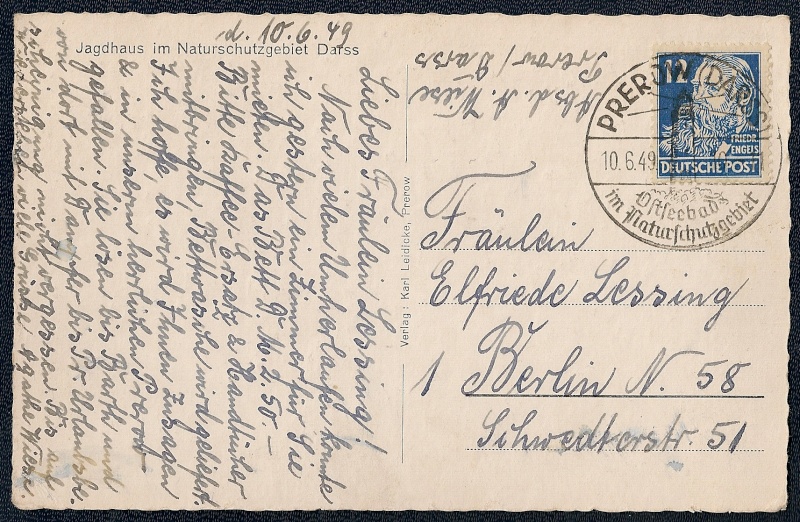 Jagdhaus im Naturschutzgebiet Darss
d. 10.6.49
Liebes Fräulein Lessing!
Nach vielem Umherlaufen konnte
ich gestern ein Zimmer für Sie
mieten. Das Bett D. M 2.50.–
Bitte Kaffee-Ersatz & Handtücher
mitbringen, Bettwäsche wird geliefert.
Ich hoffe, es wird Ihnen zusagen
& in unserm herrlichen Prerow
gefallen. Sie lösen bis Barth und
von dort mit Dampfer bis Pr. Urlaubsbe-
scheinigung nicht vergessen. Bis auf
viele Grüsse Agathe Wiese.
Abs. d. A. Wiese
Prerow / Darss
Verlag: Karl Leidicke, Prerow
12
FRIEDR.
ENGELS
DEUTSCHE POST
PREROW (DARSS)
10.6.49
Ostseebad
im Naturschutzgebiet
Fräulein
Elfriede Lessing
1 Berlin N. 58
Schwedterstr. 51